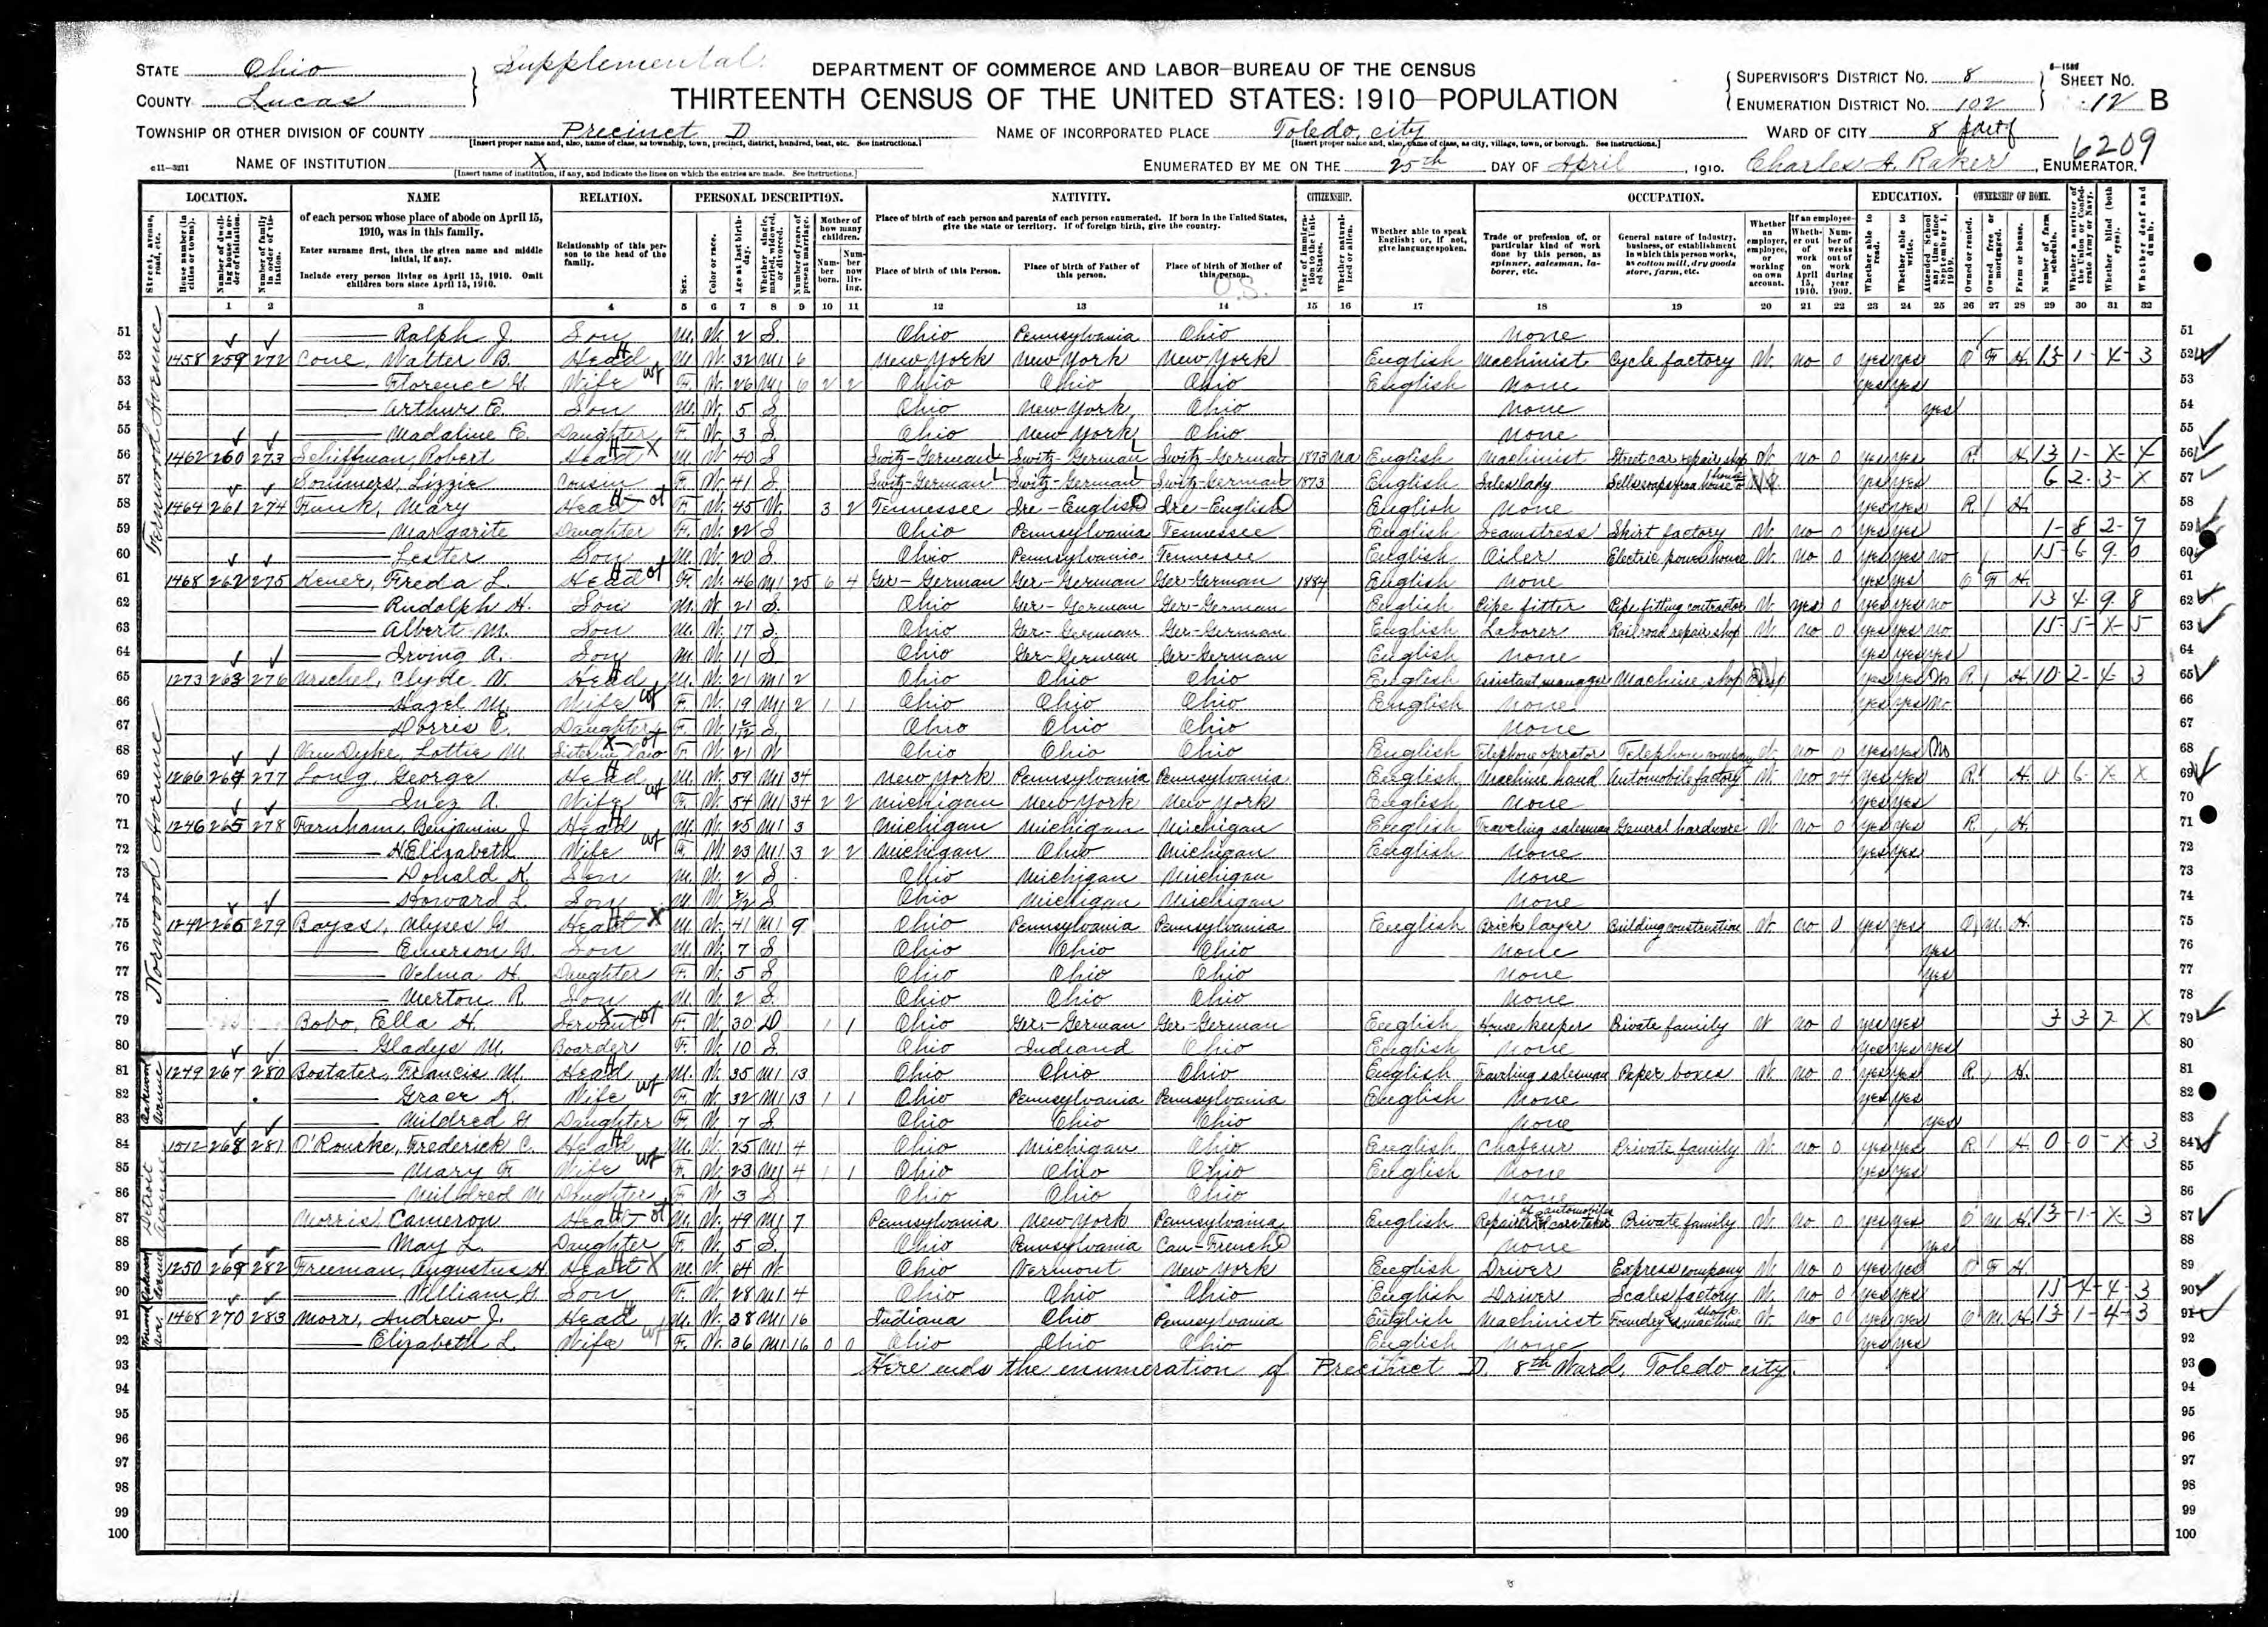 STATE Ohio
COUNTY Lucas
Supplemental
DEPARTMENT OF COMMERCE AND LABOR—BUREAU OF THE CENSUS
THIRTEENTH CENSUS OF THE UNITED STATES: 1910—POPULATION
SUPERVISOR'S DISTRICT NO. 8
ENUMERATION DISTRICT NO. 102
SHEET NO. 12 B
TOWNSHIP OR OTHER DIVISION OF COUNTY Precinct D
NAME OF INCORPORATED PLACE Toledo, city
WARD OF CITY 8 part of
6209
NAME OF INSTITUTION X
ENUMERATED BY ME ON THE 25th DAY OF April, 1910. Charles A. Raker, ENUMERATOR.
LOCATION. NAME RELATION. PERSONAL DESCRIPTION. NATIVITY. CITIZENSHIP. OCCUPATION. EDUCATION. OWNERSHIP OF HOME.
51 Ralph J. Son M. W. 2 S. Ohio Pennsylvania Ohio none
52 1458 259 272 Cone, Walter B. Head M W. 32 M1 6 New York New York New York English Machinist Cycle factory W. no 0 yes yes O F H. 13 1 - 4 - 3
53 Florence Wife F. W. 26 M1 6 2 2 Ohio Ohio Ohio English none yes yes
54 Arthur E. Son M. W. 5 S. Ohio New York Ohio none yes
55 Madaline E. Daughter F. W. 3 S. Ohio New York Ohio none
56 1462 260 273 Schiffman, Robert Head M W. 40 S Switz-German Switz-German Switz-German 1873 na English Machinist Street car repair shop W. no 0 yes yes R. H 13 1 - X - 4
57 Sommers, Lizzie Cousin F. W. 41 S. Switz-German Switz-German Switz-German 1873 English Saleslady yes yes 6 2 - 3 - X
58 1464 261 274 Funk, Mary Head F. W. 45 W. 3 2 Tennessee Ire-English Ire-English English none yes yes R H.
59 Margarite Daughter F. W. 22 S Ohio Pennsylvania Tennessee English Seamstress Shirt factory W. no 0 yes yes 1 - 8 2 - 7
60 Lester Son M. W. 20 S. Ohio Pennsylvania Tennessee English Oiler Electric power house W. no 0 yes yes no 15 - 6 9 - 0
61 1468 262 275 Freda L. Head F. W. 46 M1 25 6 4 Ger-German Ger-German Ger-German 1884 English none yes yes O F H.
62 Rudolph H. Son M. W. 21 S. Ohio Ger-German Ger-German English Pipe fitter Pipe fitting contractor W. yes 0 yes yes no 13 4 - 9 - 8
63 Albert M. Son M. W. 17 S. Ohio Ger-German Ger-German English Laborer Railroad repair shop W. no 0 yes yes no 15 - 5 - X - 5
64 Irving A. Son M. W. 11 S. Ohio Ger-German Ger-German English none yes yes yes
65 1273 263 276 Urschel, Clyde V. Head M. W. 21 M1 2 Ohio Ohio Ohio English Assistant manager Machine shop Emp yes yes no R H 10 - 2 - 4 - 3
66 Hazel M. Wife F. W. 19 M1 2 1 1 Ohio Ohio Ohio English none yes yes no
67 Dorris E. Daughter F. W. S. Ohio Ohio Ohio none
68 Van Dyke, Lottie M. Sister in law F. W. 21 W Ohio Ohio Ohio English Telephone operator Telephone company W. no 0 yes yes no
69 1266 264 277 Long, George Head M. W. 59 M1 34 New York Pennsylvania Pennsylvania English Machine hand Automobile factory W. no 24 yes yes R. H 0 - 6 - X - X
70 Inez A. Wife F. W. 54 M1 34 2 2 Michigan New York New York English none yes yes
71 1246 265 278 Farnham, Benjamin J. Head M. W. 25 M1 3 Michigan Michigan Michigan English Traveling salesman General hardware W. no 0 yes yes R. H.
72 H Elizabeth Wife F. W. 23 M1 3 2 2 Michigan Ohio Michigan English none yes yes
73 Donald K. Son M. W. 2 S Ohio Michigan Michigan none
74 Howard L. Son M. W. S Ohio Michigan Michigan none
75 1242 266 279 Bayes, Ulyses G. Head M W. 41 M1 9 Ohio Pennsylvania Pennsylvania English Brick layer Building construction W. no 0 yes yes O M. H.
76 Emerson Son M. W. 7 S. Ohio Ohio Ohio none yes
77 Velma H. Daughter F. W. 5 S. Ohio Ohio Ohio none yes
78 Merton R. Son M. W. 2 S. Ohio Ohio Ohio none
79 Bobo, Ella H. Servant F. W. 30 D 1 1 Ohio Ger-German Ger-German English House keeper Private family W no 0 yes yes 3 3 7 X
80 Gladys M. Boarder F. W. 10 S. Ohio Indiana Ohio English none yes yes yes
81 1249 267 280 Bostater, Francis M. Head M. W. 35 M1 13 Ohio Ohio Ohio English Traveling salesman Paper boxes W. no 0 yes yes R. H.
82 Grace K. Wife F. W. 32 M1 13 1 1 Ohio Pennsylvania Pennsylvania English none yes yes
83 Mildred Daughter F. W. 7 S Ohio Ohio Ohio none yes
84 1512 268 281 O'Rourke, Frederick C. Head M. W. 25 M1 4 Ohio Michigan Ohio English Chafeur Private family W. no 0 yes yes R H 0 - 0 - X - 3
85 Mary F. Wife F. W. 23 M1 4 1 1 Ohio Ohio Ohio English none yes yes
86 Mildred M Daughter F. W. 3 S Ohio Ohio Ohio none
87 Morris Cameron Head M. W. 49 M1 7 Pennsylvania New York Pennsylvania English Repairer & caretaker of automobiles Private family W. no 0 yes yes O M H 13 - 1 - X - 3
88 May L. Daughter F. W. 5 S. Ohio Pennsylvania Can-French none yes
89 1250 269 282 Freeman, Augustus H. Head M. W. 64 W Ohio Vermont New York English Driver Express company W. no 0 yes yes O F H.
90 William G Son F. W. 28 M1 4 Ohio Ohio Ohio English Driver Scales factory W. no 0 yes yes 15 - 4 - 4 - 3
91 1468 270 283 Morr, Andrew J. Head M. W. 38 M1 16 Indiana Ohio Pennsylvania English Machinist Foundry & machine shop W. no 0 yes yes O M. H 13 - 1 - 4 - 3
92 Elizabeth L. Wife F. W. 36 M1 16 0 0 Ohio Ohio Ohio English none yes yes
93 Here ends the enumeration of Precinct D, 8th Ward, Toledo city.
94
95
96
97
98
99
100